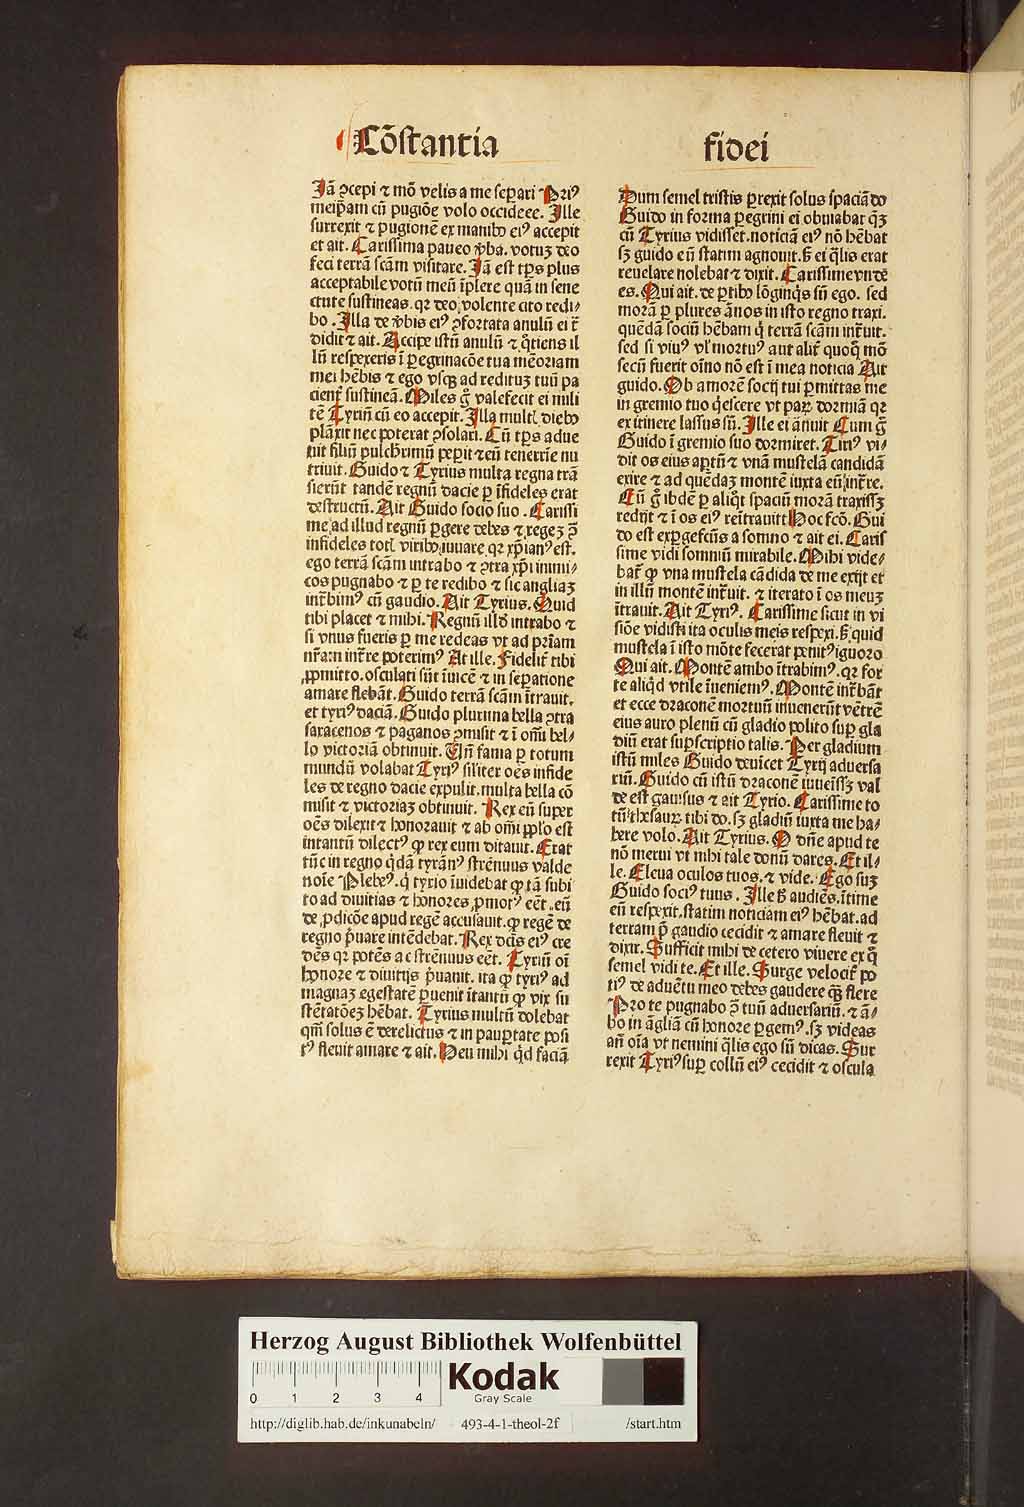 Cōstantia
fidei
Jā ꝯcepi ⁊ mō velis a me seꝑari Priꝰ
meip̄am cū pugiōe volo occidere. Ille
surrexit ⁊ pugionē ex manibꝰ eiꝰ accepit
et ait. Carissima paueo v̄ba. votuꝫ deo
feci terrā scām visitare. Jā est tp̄s plus
acceptabile votū meū īplere quā in sene
ctute sustineas. qr deo volente cito redi⸗
bo. Illa de v̄bis eiꝰ ꝯfortata anulū ei t̄
didit ⁊ ait. Accipe istū anulū ⁊ q̄tiens il
lū respexeris ī ꝑegrinacōe tua mēoriam
mei hēbis ⁊ ego vsqꝫ ad redituꝫ tuū pa
cient̄ sustineā. Miles ḡ valefecit ei mili
tē Tyriū cū eo accepit. Illa multꝭ diebꝰ
plāxit nec poterat ꝯsolari. Cū tp̄s adue
nit filiū pulcherrimū peꝑit ⁊ eū tenerrīe nu
triuit. Guido ⁊ Tyrius multa regna trā
sierūt tandē regnū dacie ꝑ īfideles erat
destructū. Ait Guido socio suo. Carissi
me ad illud regnū ꝑgere debes ⁊ regeꝫ ꝯ̄
infideles totꝭ viribꝰ iuuare qr xp̄ianꝰ est.
ego terrā scām intrabo ⁊ ꝯtra xp̄i inimi⸗
cos pugnabo ⁊ ꝑ te redibo ⁊ sic angliaꝫ
int̄bimꝰ cū gaudio. Ait Tyrius. Quid
tibi placet ⁊ mihi. Regnū illd̄ intrabo ⁊
si vnus fueris ꝑ me redeas vt ad pr̄iam
nr̄am int̄re poterimꝰ At ille. Fidelit̄ tibi
ꝓmitto. osculati sūt īuicē ⁊ in seꝑatione
amare flebāt. Guido terrā scām ītrauit.
et tyriꝰ daciā. Guido plurima bella ꝯtra
saracenos ⁊ paganos ꝯmisit ⁊ ī om̄i bel⸗
lo victoriā obtinuit. Un̄ fama ꝑ totum
mundū volabat Tyriꝰ siliter oēs infide
les de regno dacie expulit. multa bella cō
misit ⁊ victoriaꝫ obtinuit. Rex eū super
oēs dilexit ⁊ honorauit ⁊ ab om̄i pplo est
intantū dilectꝰ ꝙ rex eum ditauit. Erat
tūc in regno qꝺā tyrānꝰ strēnuus valde
noīe Plebeꝰ. q̇ tyrio īuidebat ꝙ tā subi
to ad diuitias ⁊ honores ꝓmotꝰ eēt. eū
de ꝓdicōe apud regē accusauit. ꝙ regē de
regno p̄uare intēdebat. Rex dc̄is eiꝰ cre
dēs qr potēs ac strēnuus eēt. Tyriū oī
honore ⁊ diuitijs p̄uauit. ita ꝙ tyriꝰ ad
magnaꝫ egestatē ꝑuenit ītantū ꝙ vix su
stētatōeꝫ hēbat. Tyrius multū dolebat
qm̄ solus ē derelictus ⁊ in pauꝑtate posi
tꝰ fleuit amare ⁊ ait. Heu mihi q̇d faciā
Dum semel tristis ꝑrexit solus spaciādo
Guido in forma ꝑegrini ei obuiabat qꝫ
cū Tyrius vidisset. noticiā eiꝰ nō hēbat
sꝫ guido eū statim agnouit. s̄ ei q̄lis erat
reuelare nolebat ⁊ dixit. Carissime vnde
es. Qui ait. de ꝑtibꝰ lōginq̇s sū ego. sed
morā ꝑ plures ānos in isto regno traxi.
quēdā sociū hēbam q̇ terrā scām int̄uit.
sed si viuꝰ vl̓ mortuꝰ aut alit̄ quoq̇ mō
secū fuerit oīno nō est ī mea noticia Ait
guido. Ob amorē socij tui ꝑmittas me
in gremio tuo q̇escere vt paꝝ dormiā qr
ex itinere lassus sū. Ille ei ānuit Cum ḡ
Guido ī gremio suo dormiret. Tiriꝰ vi⸗
dit os eius aꝑtū ⁊ vnā mustelā candidā
exire ⁊ ad quēdaꝫ montē iuxta eū int̄re.
Cū ḡ ibdē ꝑ aliq̇t spaciū morā traxissꝫ
redijt ⁊ ī os eiꝰ reītrauitt Hoc fcō. Gui
do est exꝑgefcūs a somno ⁊ ait ei. Caris
sime vidi somniū mirabile. Mihi vide⸗
bat̄ ꝙ vna mustela cādida de me exijt et
in illū montē int̄uit. ⁊ iterato ī os meuꝫ
ītrauit. Ait Tyriꝰ. Carissime sicut in vi
siōe vidisti ita oculis meis respexi. s̄ quid
mustela ī isto mōte fecerat penitꝰ ignoro
Qui ait. Montē ambo ītrabimꝰ. qr for
te aliq̇d vtile īueniemꝰ. Montē int̄bāt
et ecce draconē mortuū inuenerūt vētrē
eius auro plenū cū gladio polito suꝑ gla
diū erat suꝑscriptio talis. Per gladium
istū miles Guido deuīcet Tyrij aduersa
riū. Guido cū istū draconē īueīssꝫ val
de est gauisus ⁊ ait Tyrio. Carissime to
tū thesauꝝ tibi do. sꝫ gladiū iuxta me ha⸗
bere volo. Ait Tyrius. O dn̄e apud te
nō merui vt mihi tale donū dares. Et il⸗
le. Eleua oculos tuos. ⁊ vide. Ego suꝫ
Guido sociꝰ tuus. Ille h̄ audiēs. ītime
eū respexit. statim noticiam eiꝰ hēbat. ad
terram p̄ gaudio cecidit ⁊ amare fleuit ⁊
dixit. Sufficit mihi de cetero viuere ex q̄
semel vidi te. Et ille. Surge velocit̄ po
tiꝰ de aduētu meo debes gaudere qꝫ flere
Pro te pugnabo ꝯ̄ tuū aduersariū. ⁊ ā⸗
bo in āgliā cū honore ꝑgemꝰ. sꝫ videas
añ oīa vt nemini q̄lis ego sū dicas. Sur
rexit Tyriꝰ suꝑ collū eiꝰ cecidit ⁊ oscula
Herzog August Bibliothek Wolfenbüttel
0 1 2 3 4
Kodak
Gray Scale
http://diglib.hab.de/inkunabeln/ 493-4-1-theol-2f /start.htm